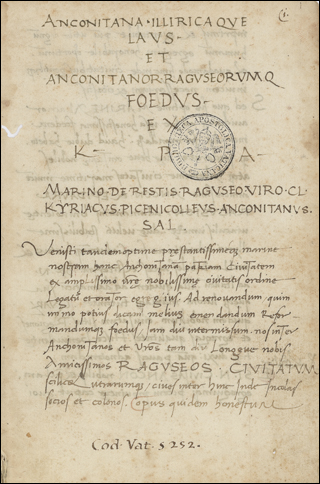 1.
ANCONITANA · ILLIRICAQVE
LAVS ·
ET
ANCONITANOR · RAGVSEORVMQ
FOEDVS ·
EX
K · P · A ·
MARINO · DE · RESTIS · RAGVSEO · VIRO · CL ·
KYRIACVS · PICENICOLLEVS · ANCONITANVS ·
SAL ·
Venisti tandem optime prestantissimeq marine
nostram hanc Anchonitanã patriam Civitatem
ex amplissimo iure nobilissime civitatis ordine
Legatus et orator egregius. Ad renovandum, quin
immo potius dicam melius enervandum Refor
mandumq foedus, iam diu intermissum nos inter
Anchonitanos et Vros tam diu Longeque nobis
Amicissimos RAGVSEOS · CIVITATVM
scilicet utrarumque cives inter hinc inde Incolas
socios et colonos. (opus quidem honestum
Cod. Vat. 5252.